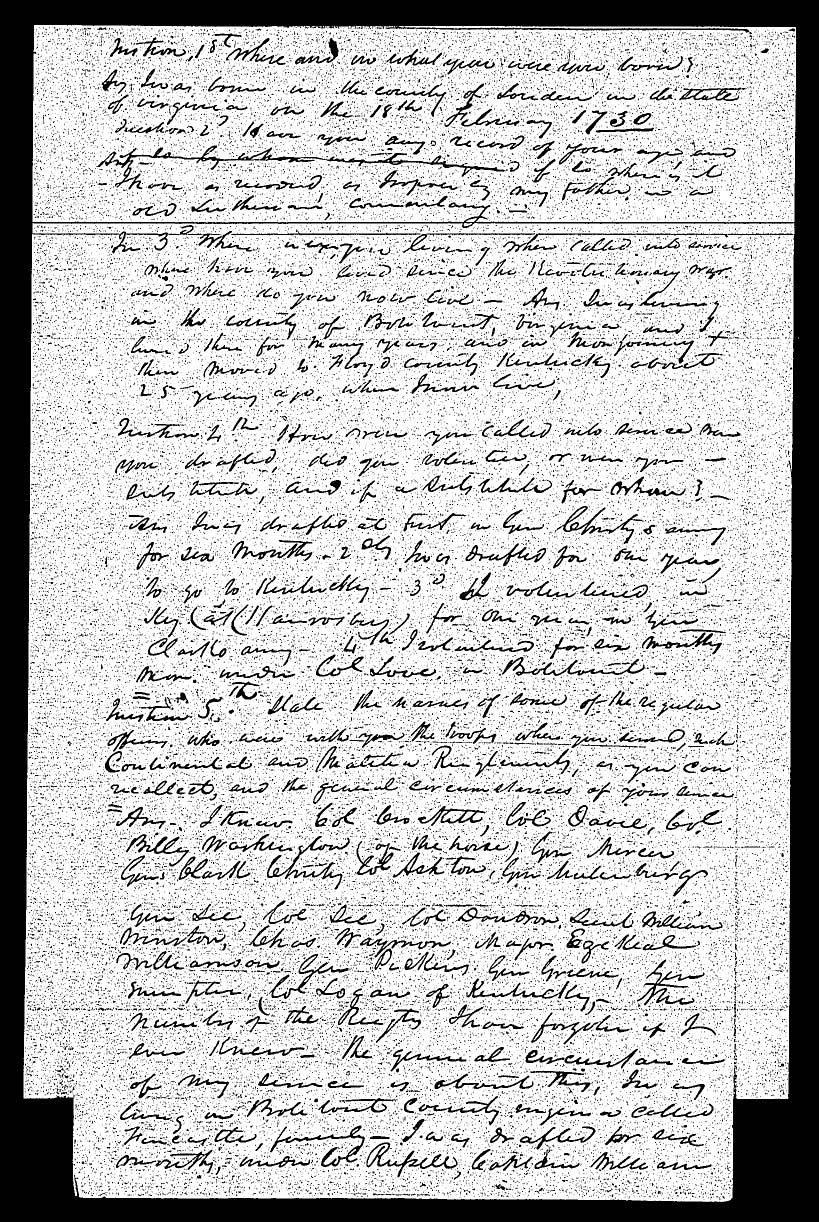 Question 1st Where and in what year were you born?
Ans I was born in the county of Louden in the state
of virginia on the 18th February 1730
Question 2d Have you any record of your age, and
if so where is it
- I have a record, as by my Father in a
old Lutheran, commentary. -
3d Where were you living when called into service
where have you lived since the Revolutionary war
and where do you now live - Ans. I was living
in the county of Botitourt, Virginia and I
lived there for many years and in Montgomery &
then moved to Floyd County Kentucky about
25 years ago, where I now live,
Question 4th How were you called into service were
you drafted, did you volunteer, or were you -
substitute, and if a substitute for whom? -
Ans I was drafted at first in Gen Christy's army
for six months - 2dly I was drafted for one year,
to go to Kentucky - 3d I volunteered, in
Ky (at Harrodsburg) for one year, in Gen
Clarks army - 4th I volunteered for six months
more under Col Love, in Botitourt -
Question 5th State the names of some of the regular
officers who were with you the troops where you served, such
Continental and Militia Regiments, as you can
recollect, and the general circumstances of your service
Ans - I knew Col Crockett, Col Davie, Col
Billy Washington (of the horse) Gen Mercer
Gen Clark Christy Col Ashton, Gen Mulenburg
Gen Lee, Col Lee, Col Lieut William
Winston, Chas. Major Ezekeal
Williamson, Gen Pickens, Gen Greene, Gen
Sumpter, Col Logan of Kentucky - The
number of the Regts I have forgotten if I
ever knew - The general circumstances
of my service is about this, I was
living in Botitourt County called
Fincastle, formerly - I was drafted for six
months, under Col. Russell, Captain William